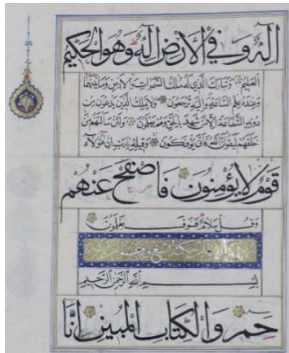 اله وفي الأرض اله وهو الحكيم
العليم وتبارك الذي له ملك السموات والأرض وما بينهما
وعنده علم الساعة وإليه ترجعون ولا يملك الذين يدعون من
دونه الشفاعة إلا من شهد بالحق وهم يعلمون ولئن سألتهم من
خلقهم ليقولن الله فأنى يؤفكون وقيله يا رب إن هؤلاء
قوم لا يؤمنون فاصفح عنهم
وقل سلام فسوف يعلمون
بسم الله الرحمن الرحيم
حم والكتاب المبين انا